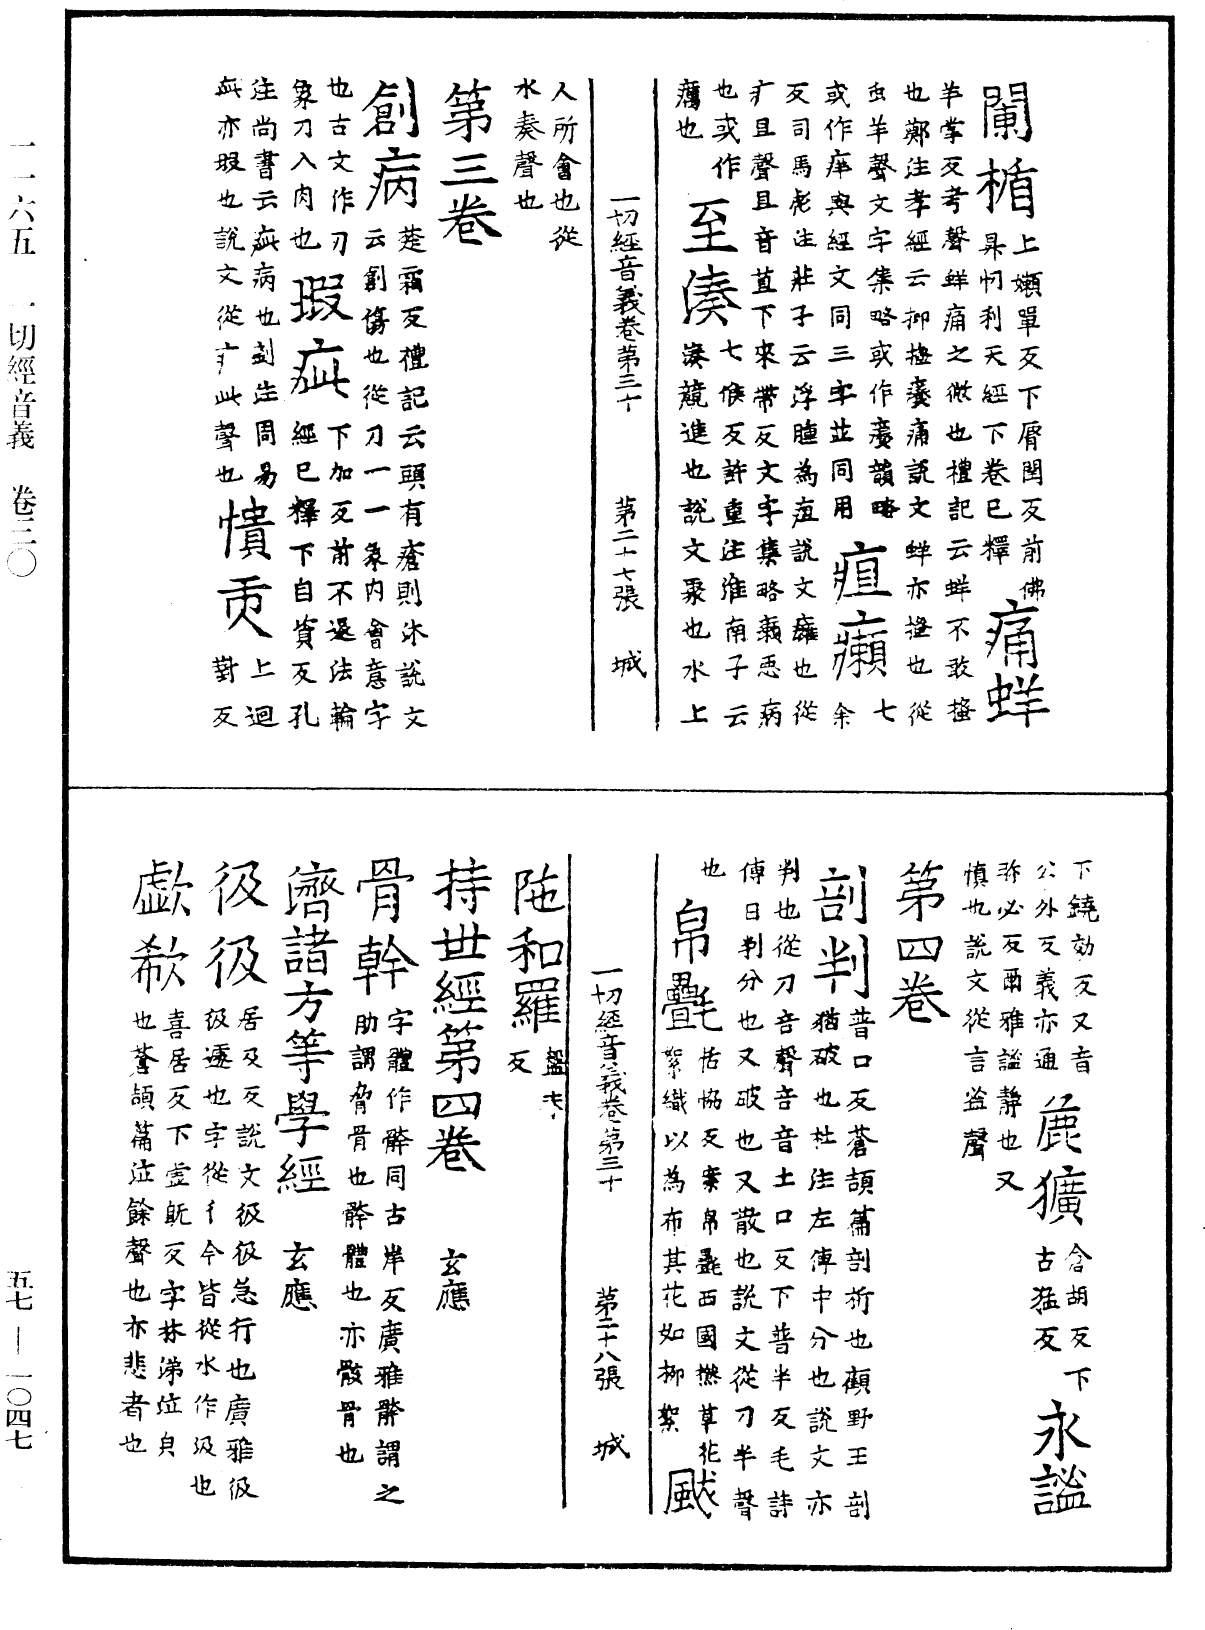 一一六五 一切經音義 卷三〇
五七—一〇四七
闌楯 上嬾單反下脣閏反前佛昇忉利天經下卷已釋 痛蛘
羊掌反考聲蛘痛之微也禮記云蛘不敢搔
也鄭注孝經云抑搔癢痛說文蛘亦搔也從
虫羊聲文字集略或作癢韻略
或作痒與經文同三字並同用 疽癩 七余
反司馬彪注莊子云浮腫為疽說文癰也從
疒且聲且音苴下來帶反文字集略癩惡病
也或作癘也 至湊 七候反許重注淮南子云
湊競進也說文聚也水上
人所會也從
水奏聲也
一切經音義卷第三十 第二十七張 城
第三卷
創病 楚霜反禮記云頭有瘡則沐說文
云創傷也從刀一一象內會意字
也古文作刅
象刀入肉也 瑕疵 下加反前不退法輪
經已釋下自資反孔
注尚書云疵病也劉注周易
疵亦瑕也說文從疒此聲也 憒閙 上迴對反
下鐃効反又音
公外反義亦通 麁獷 倉胡反下古猛反 永謐
弥必反爾雅謐靜也又
慎也說文從言盗聲
第四卷
剖判 普口反蒼頡篇剖析也顧野王剖
猶破也杜注左傳中分也說文亦
判也從刀咅聲咅音土口反下普半反毛詩
傳曰判分也又破也又散也說文從刀半聲
也 帛氎 恬協反案帛氎西國撚草花
絮織以為布其花如柳絮 颰
一切經音義卷第三十 第二十八張 城
陁和羅 盤末反
持世經第四卷 玄應
骨幹 字體作骭同古岸反廣雅骭謂之
肋謂脅骨也骭體也亦骸骨也
濟諸方等學經 玄應
伋伋 居及反說文伋伋急行也廣雅伋
伋遽也字從彳今皆從水作汲也
歔欷 喜居反下虛旣反字林涕泣皃
也蒼頡篇泣餘聲也亦悲者也